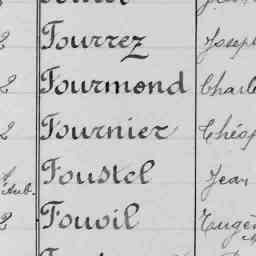 2 Fourrez Joseph
2 Fourmond Charle
2 Fournier Théop
Aub. Foustel Jean
2 Fouvil Eugèn